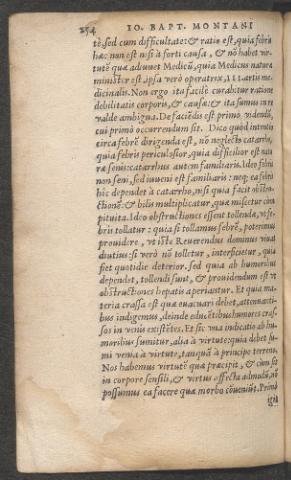 254 IO. BAPT. MONTANI
tẽ, sed cum difficultate: & ratio est, quia febris
hæc non est nisi à forti causa, & non habet vir-
tutẽ quæ adiuuet Medicũ, quia Medicus naturæ
minister est, ipsa verò operatrix, III. artis me-
dicinalis. Non ergo ita facilè curabitur ratione
debilitatis corporis, & causæ: & ita sumus in re
valde ambigua. De faciẽdis est primo videndũ,
cui primò occurrendum sit. Dico quòd intentio
circa febrẽ dirigenda est, nõ neglecto catarrho,
quia febris periculosior, quia difficilior est natu-
ræ seni: catarrhus autem familiaris. Ideo febris
non seni, sed iuueni est familiaris: neque ea febris
hîc dependet à catarrho, nisi quia facit obstru-
ctionẽ: & bilis multiplicatur, quæ miscetur cum
pituita. Ideo obstructiones essent tollendæ, vt fe-
bris tollatur: quia si tollamus febrẽ, poterimus
prouidere, vt iste Reuerendus dominus viuat
diutius: si verò nõ tolletur, interficietur, quia
fiet quotidie deterior. Sed quia ab humoribus
dependet, tollendi sunt, & prouidendum est vt
obstructiones hepatis aperiantur. Et quia ma-
teria crassa est quæ euacuari debet, attenuanti-
bus indigemus, deinde educẽtibus humores cras-
sos in venis existẽtes. Et sic vna indicatio ab hu-
moribus sumitur, alia à virtute: quia debet su-
mi venia à virtute, tanquã à principe terreno.
Nos habemus virtutẽ quæ præcipit, & cùm sit
in corpore senili, & virtus effœta admodũ, nõ
possumus ea facere quæ morbo cõueniũt. Primò
igit